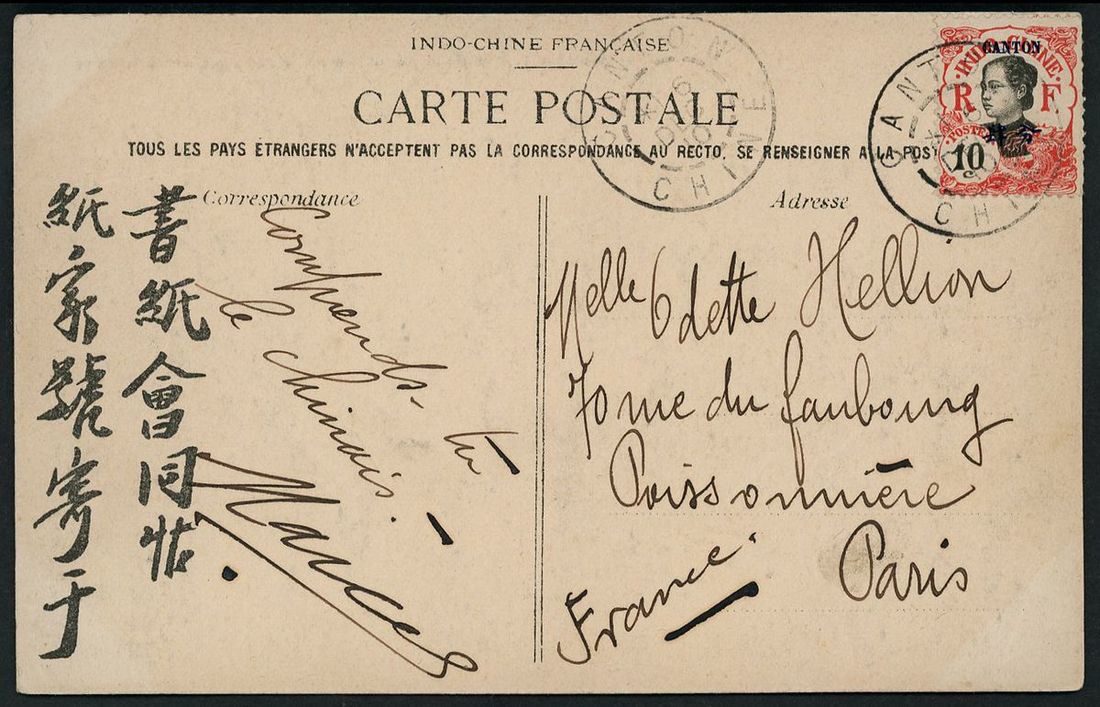 INDO-CHINE FRANÇAISE
CARTE POSTALE
TOUS LES PAYS ÉTRANGERS N'ACCEPTENT PAS LA CORRESPONDANCE AU RECTO, SE RENSEIGNER A LA POST
Correspondance
Adresse
書紙會同帖
紙家號寄于
Comprends-tu
le chinois.
Melle Odette Hellion
70 rue du faubourg
Poissonnière
Paris
France.
CANTON
CHINE
CANTON
CHI
CANTON
INDO-CHINE
R F
POSTES
10